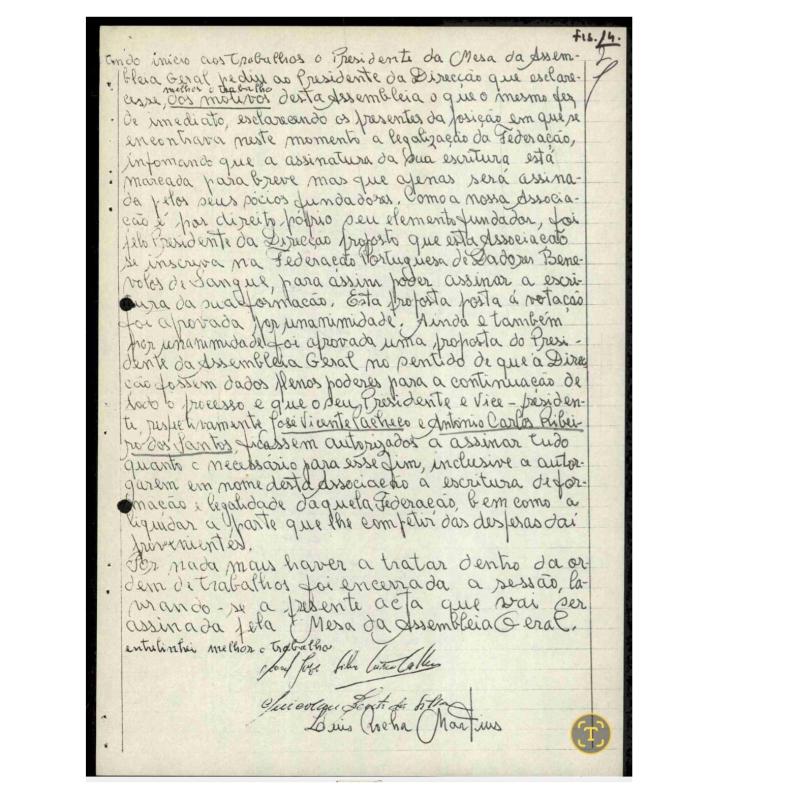 Fls. 14.
ndo início aos trabalhos o Presidente da Mesa da Assem-
bleia Geral pediu ao Presidente da Direcção que esclare-
melhor o trabalho
cesse, dos motivos desta Assembleia o que o mesmo fez
de imediato, esclarecendo os presentes da posição em que se
encontrava neste momento a legalização da Federação,
infomando que a assinatura da sua escritura está
marcada para breve mas que apenas será assina-
da pelos seus sócios fundadores. Como a nossa Associa-
ção é por direito póprio seu elemento fundador, foi
pelo Presidente da Direcção proposto que esta Associação
se inscreva na Federação Portuguesa de Dadores Bene-
volos de Sangue, para assim poder assinar a escri-
tura da sua formação. Esta proposta posta á votação
foi aprovada por unanimidade. Ainda e também
por unanimidade foi aprovada uma proposta do Presi-
dente da Assembleia Geral no sentido de que à Direc
ção fossem dados plenos poderes para a continuação de
todo o processo e que o seu Presidente e Vice-presiden-
te respectivamente José Vicente Pacheco e António Carlos Ribei-
ro dos Santos, ficassem autorizados a assinar tudo
quanto é necessário para esse fim, inclusive a autor-
garem em nome desta Associação a escritura de for-
mação e legalidade daquela Federação, bem como a
liquidar a parte que lhe competir das despesas daí
provenientes.
Por nada mais haver a tratar dentro da or-
dem de trabalhos foi encerrada a sessão, la-
vrando-se a presente acta que vai ser
assinada pela Mesa da Assembleia Geral.
entrelinhei melhor o trabalho
Silva
da Silva
Luis Rocha Martins